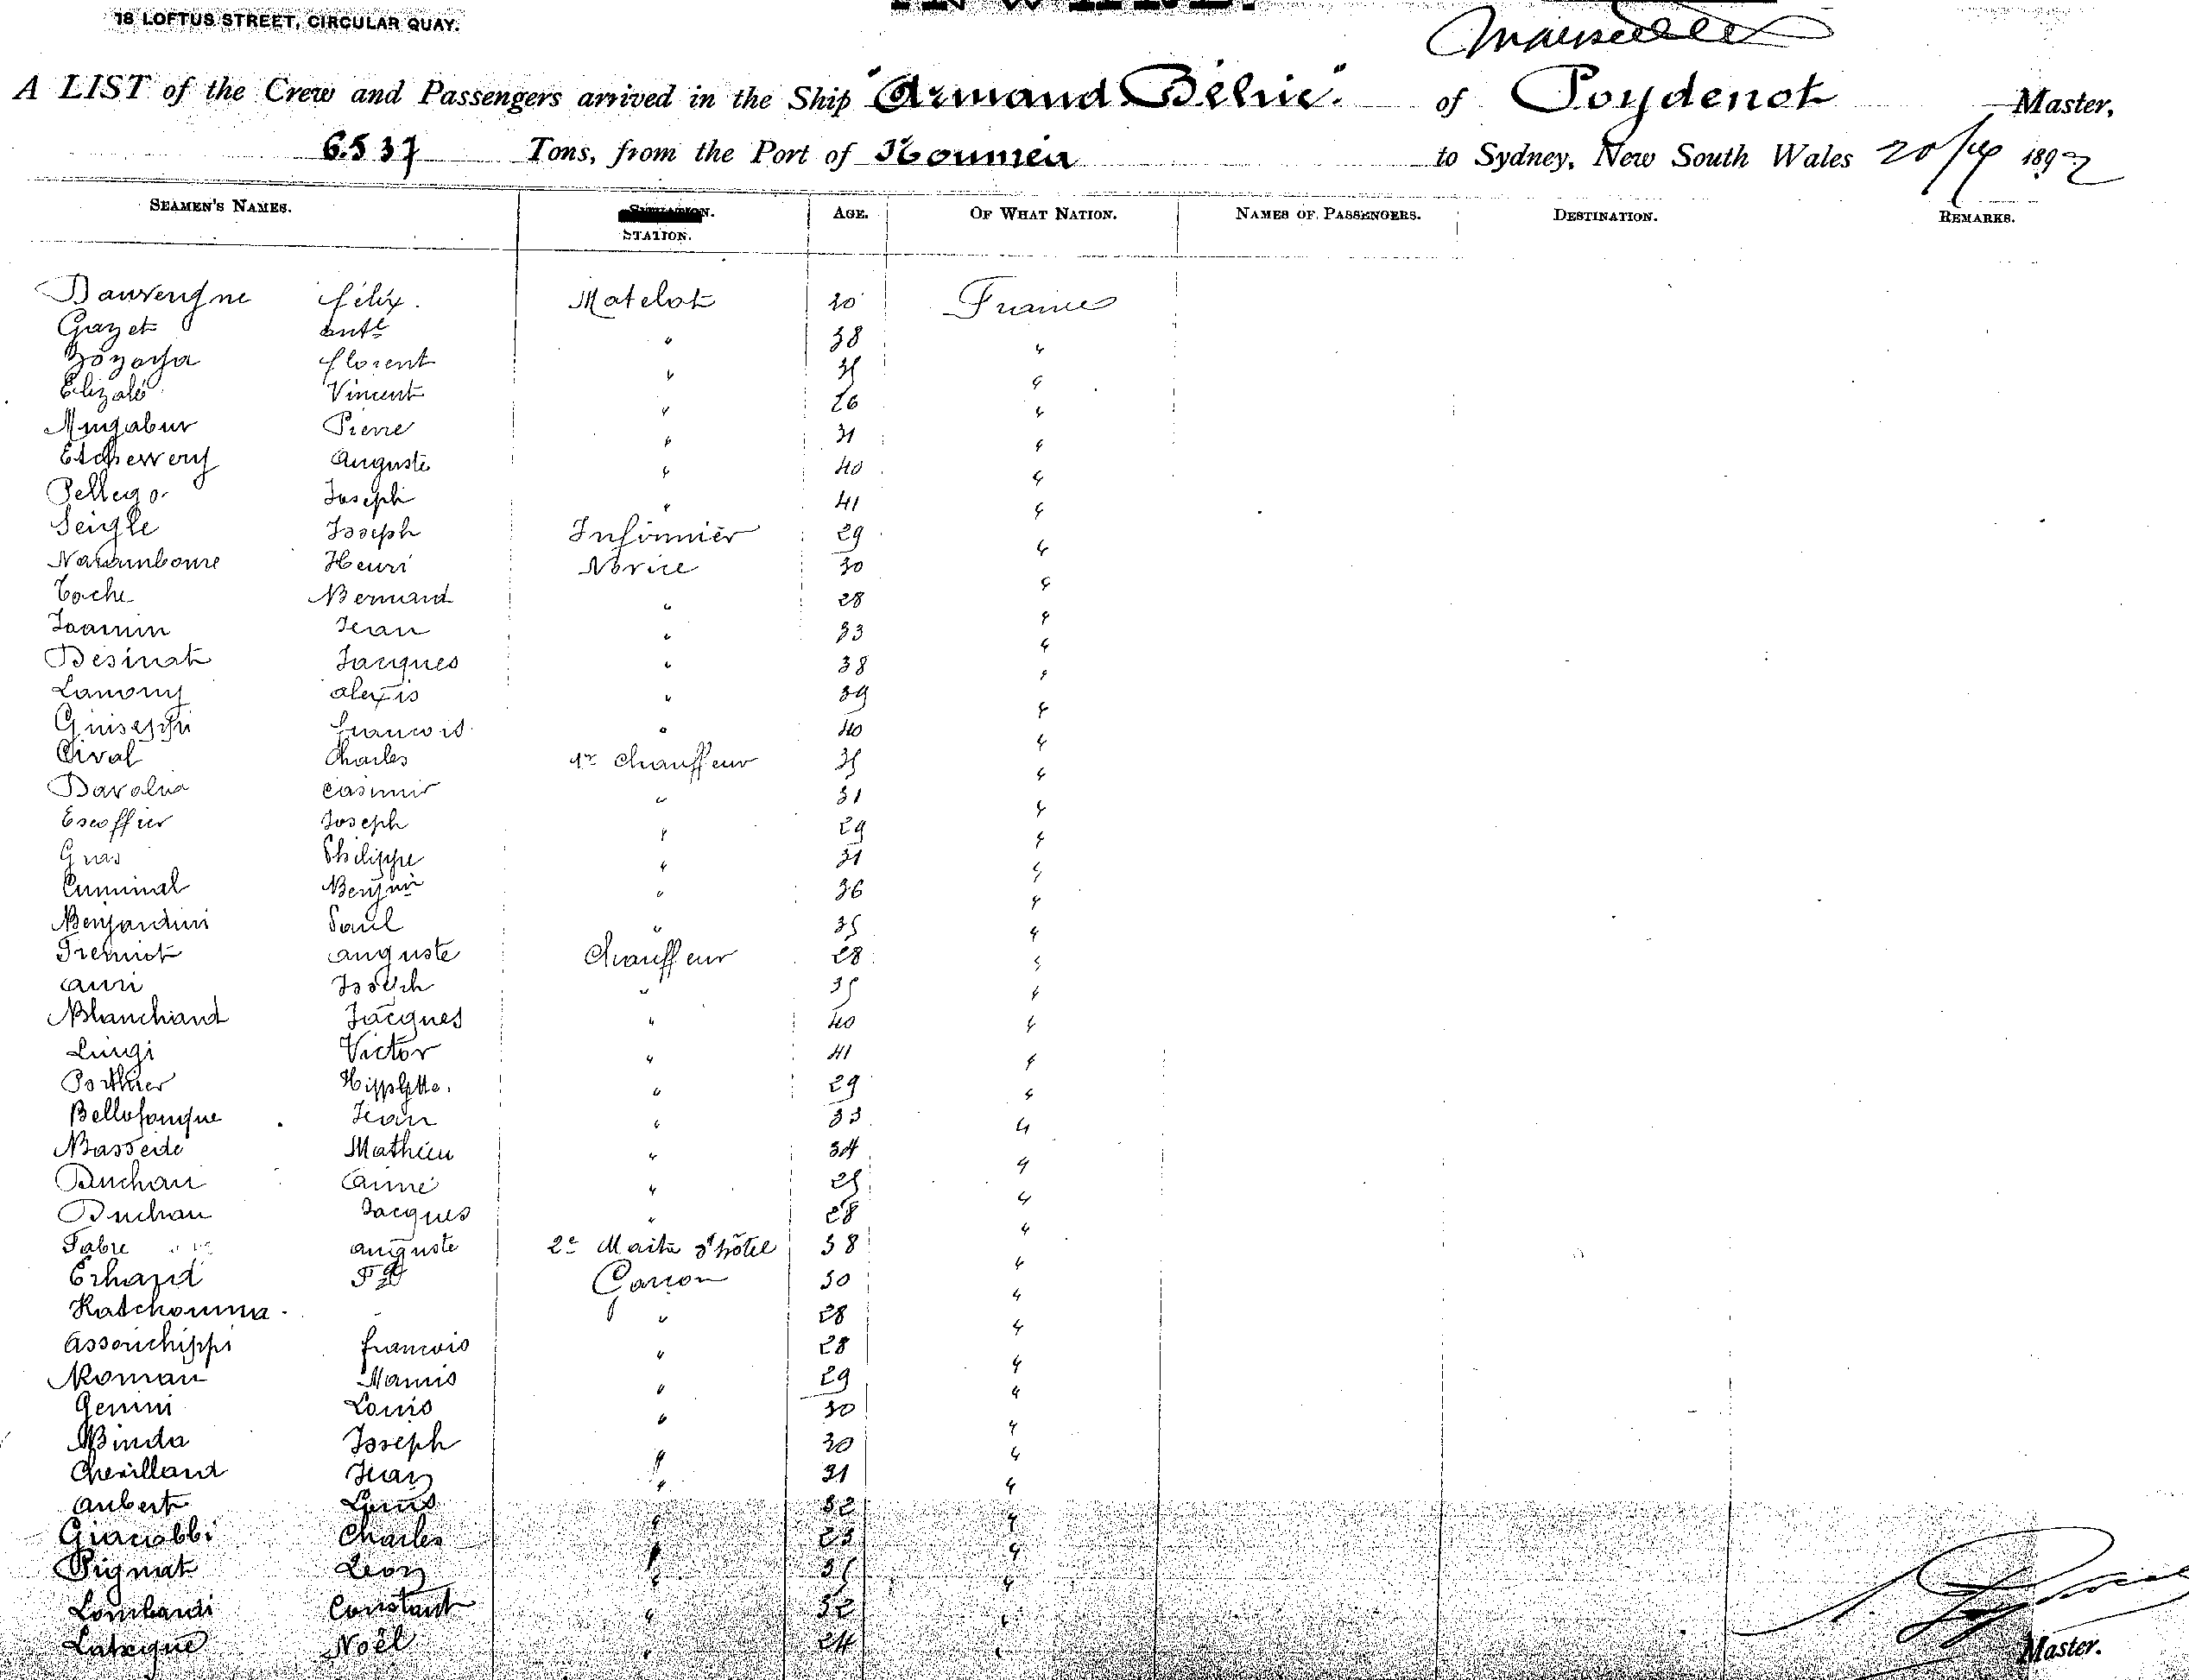 18 LOFTUS STREET, CIRCULAR QUAY.
Marseilles
A LIST of the Crew and Passengers arrived in the Ship "Armand Béhic". of Poydenot Master,
6.537 Tons, from the Port of Nouméa to Sydney, New South Wales 1892
SEAMEN'S NAMES. STATION. AGE. OF WHAT NATION. NAMES OF PASSENGERS. DESTINATION. REMARKS.
Dauvergne félix. Matelot 30 France
Gazet ant.e " 38 "
Zozaya florent " 35 "
Elizalé Vincent " 26 "
Mingabur Pierre " 31 "
Etcheverry Auguste " 40 "
Pellego Joseph " 41 "
Seigle Joseph Infirmier 29 "
Henri Novice 30 "
Coche Bernard " 28 "
Joamin Jean " 33 "
Désirat Jacques " 38 "
Lamony alexis " 39 "
Giuseppi francois " 40 "
Cival Charles 1er chauffeur 35 "
Davolia Casimir " 31 "
Escoffier Joseph " 29 "
Gras Philippe " 31 "
Cuminal Benjin " 36 "
Benjardini Paul " 35 "
Fremiot auguste Chauffeur 28 "
auri Joseph " 35 "
Blanchard Jacques " 40 "
Luigi Victor " 41 "
Porthier Hippolyte. " 29 "
Bellofonque Jean " 33 "
Basseide Mathieu " 34 "
Duchau aimé " 25 "
Duchau Jacques " 28 "
Fabre auguste 2e Maitre d'hôtel 38 "
Erhard Fd Garcon 30 "
Katchouma - " 28 "
Assouchippi francois " 28 "
Roman Marius " 29 "
Genini Louis " 30 "
Binda Joseph " 30 "
Chevilland Jean " 31 "
aubert Louis " 32 "
Giacobbi Charles " 23 "
Pignat Léon " 35 "
Lombardi Constant " 32 "
Labeigue Noël " 24 "
Master.